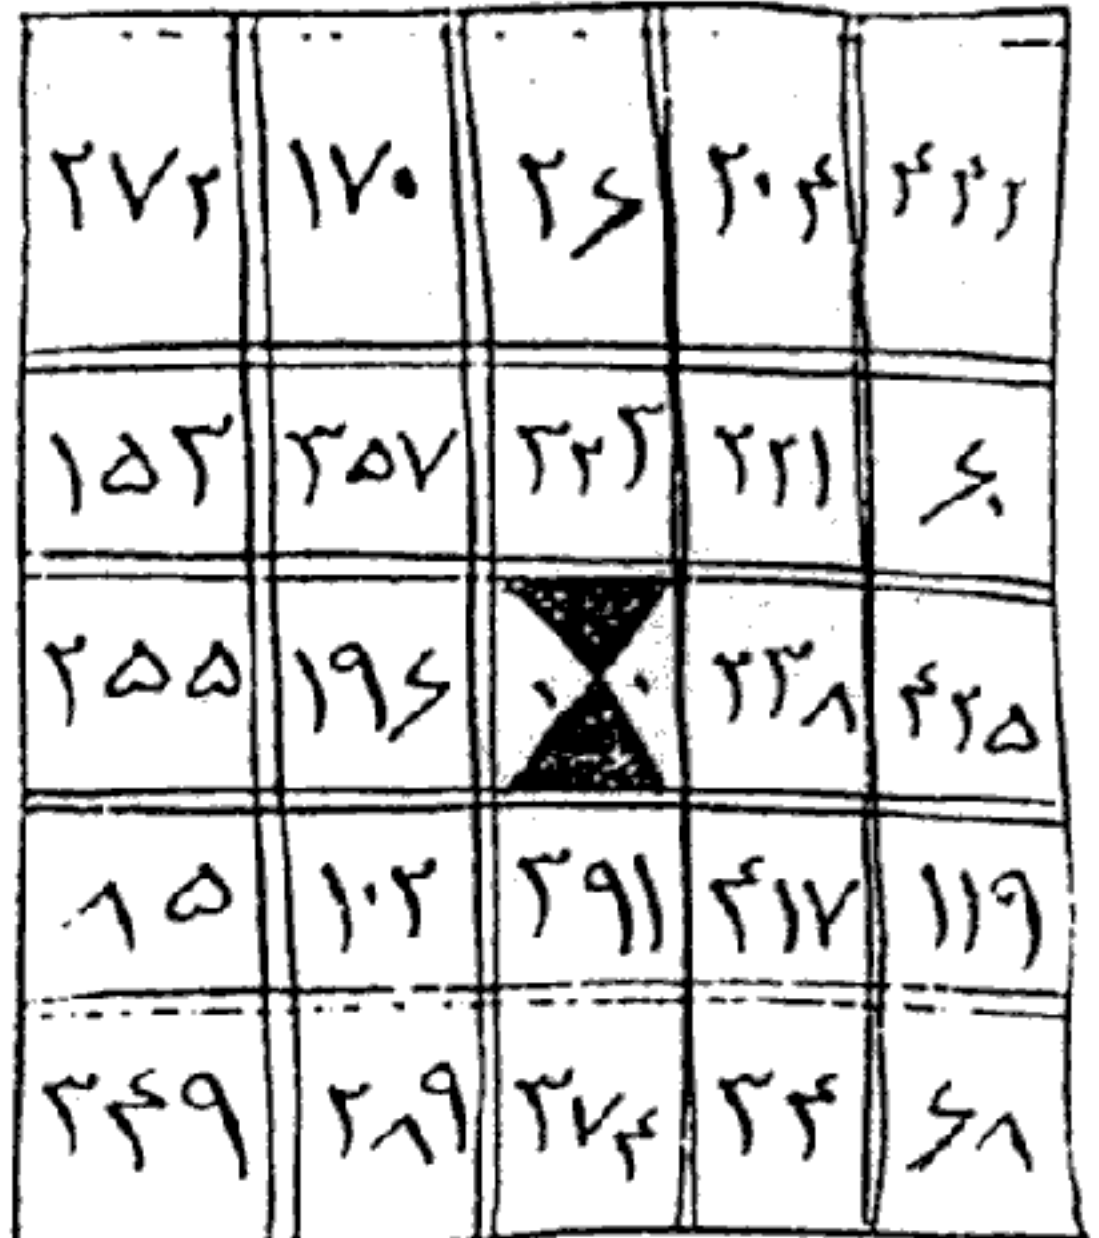 ۲۷۲ ۱۷۰ ۲۶ ۲۰۴ ۴۴۲
۱۵۳ ۳۵۷ ۳۲۳ ۲۲۱ ۶۰
۲۵۵ ۱۹۶ ۲۳۸ ۴۲۵
۸۵ ۱۰۲ ۳۹۱ ۴۱۷ ۱۱۹
۳۴۹ ۲۸۹ ۳۷۴ ۳۴ ۶۸